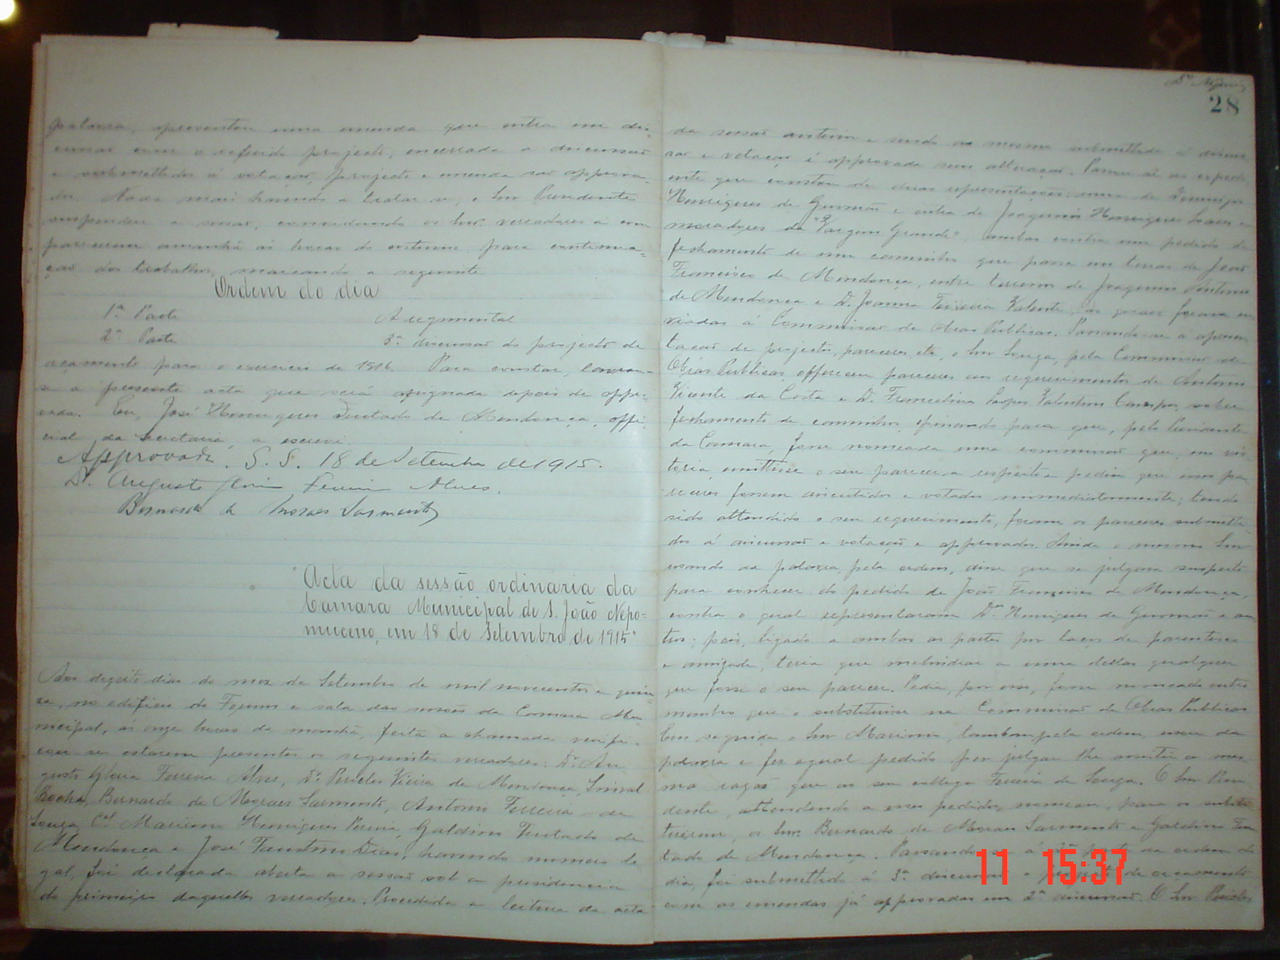 palavra, apresentou uma emenda que entra em dis-
cussão com o referido projecto, encerrada a discussão
e submettidos á votação, projecto e emenda são approva-
dos. Nada mais havendo a tratar-se, o Snr. Presidente
suspendeu a sessão, convidando os Snrs. vereadores a com-
parecerem amanhã ás horas do costume para continua-
ção dos trabalhos, marcando a seguinte
Ordem do dia
1ª Parte A regimental
2ª Parte 3ª discussão do projecto de
orçamento para o exercicio de 1916. Para constar, lavrou-
se a presente acta que será assignada depois de appro-
vada. Eu, José Henriques Furtado de Mendonça, offi-
cial da secretaria a escrevi.
Approvada. S. S. 18 de Setembro de 1915.
Dr. Augusto Gloria Ferreira Alves.
Bernardo de Moraes Sarmento
"Acta da sessão ordinaria da
Camara Municipal de S. João Nepo-
muceno, em 18 de Setembro de 1915"
Aos dezoito dias do mez de Setembro de mil novecentos e quin-
ze, no edificio do Forum e sala das sessões da Camara Mu-
nicipal, ás onze horas da manhã, feita a chamada verifi-
cou-se estarem presentes os seguintes vereadores: Dr. Au-
gusto Gloria Ferreira Alves, Dr. Pericles Vieira de Mendonça,
Rocha, Bernardo de Moraes Sarmento, Antonio Ferreira de
Souza, Cel. Mariano Henriques Pereira, Galdino Furtado de
Mendonça e José Faustino Dias, havendo numero le-
gal, foi declarada aberta a sessão sob a presidencia
do primeiro daquelles vereadores. Procedida a leitura da acta
28
da sessão anterior e sendo a mesma submettida á discus-
são e votação é approvada sem alteração. Passa-se ao expedi-
ente que constou de duas representações: uma de
Henriques de Gusmão e outra de Joaquim Henriques e
moradores da "Vargem Grande", ambas contra um pedido de
fechamento de um caminho que passa em terras de João
Francisco de Mendonça, entre terrenos de Joaquim Antonio
de Mendonça e D. Joanna Teixeira Valente, as quaes foram en-
viadas á Commissão de Obras Publicas. Passando-se á apresen-
tação de projectos, pareceres, etc, o Snr. Souza, pela Commissão de
Obras Publicas, offerece pareceres em requerimentos de Antonio
Vicente da Costa e D. Francelina Valentim Campos, sobre
fechamento de caminhos, opinando para que, pelo Presidente
da Camara, fosse nomeada uma commissão que, em vis-
toria emittisse o seu parecer a respeito e pedia que esses pa-
receres fossem discutidos e votados immediatamente; tendo
sido attendido o seu requerimento, foram os pareceres submetti-
dos á discussão e votação e approvados. Ainda o mesmo Snr.
usando da palavra, pela ordem, disse que se julgava suspeito
para conhecer do pedido de João Francisco de Mendonça,
contra o qual representaram Henriques de Gusmão e ou-
tros; pois, ligado a ambas as partes por laços de parentesco
e amizade, teria que melindrar a uma dellas qualquer
que fosse o seu parecer. Pedia, por isso, fosse nomeado outro
membro que o substituisse na Commissão de Obras Publicas.
Em seguida o Snr. Mariano, tambem pela ordem, usou da
palavra e fez egual pedido por julgar lhe assistir a mes-
ma razão que ao seu collega Ferreira de Souza. O Snr. Presi-
dente, attendendo a esses pedidos, nomeou, para os substi-
tuirem, os Snrs. Bernardo de Moraes Sarmento e Galdino Fur-
tado de Mendonça. Passando-se á 2ª parte da ordem do
dia, foi submettido á 3ª discussão o projecto de orçamento
com as emendas já approvadas em 2ª discussão. O Snr. Pericles
11 15:37